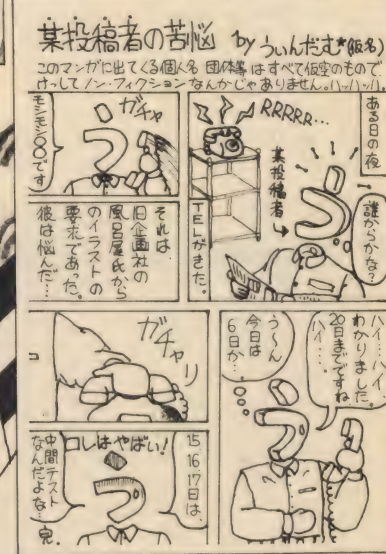 某投稿者の苦悩 by うぃんだむ*(仮名)
このマンガに出てくる個人名 団体等はすべて仮空のもので
けっしてノン・フィクションなんかじゃありません。ハッハッハ。
ある日の夜
RRRRR...
誰からかな?
某投稿者→
う
TELがきた。
ガチャ
モシモシ〇〇です
う
それは
旧企画社の
風呂屋氏から
のイラストの
要求であった。
彼は悩んだ…
ハイ…ハイ
わかりました。
20日までですね
ハイ……
う〜ん
今日は
6日か…
う
ガチャリ
15
16
17日は、
コレはやばい!
う
中間テスト
なんだよな…
完。